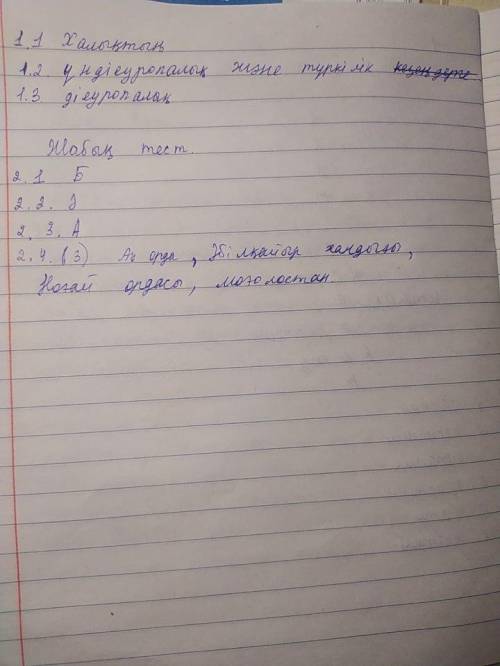 1.1 Халықтың
1.2. үндіеуропалық және түркілік кезеңдерге
1.3. діеуропалақ
Жабық тест.
2.1 Б
2.2. З
2.3. А
2.4. (3) Ақ орда, Әбілқайыр хандығы,
Ноғай ордасы, моғолостан.